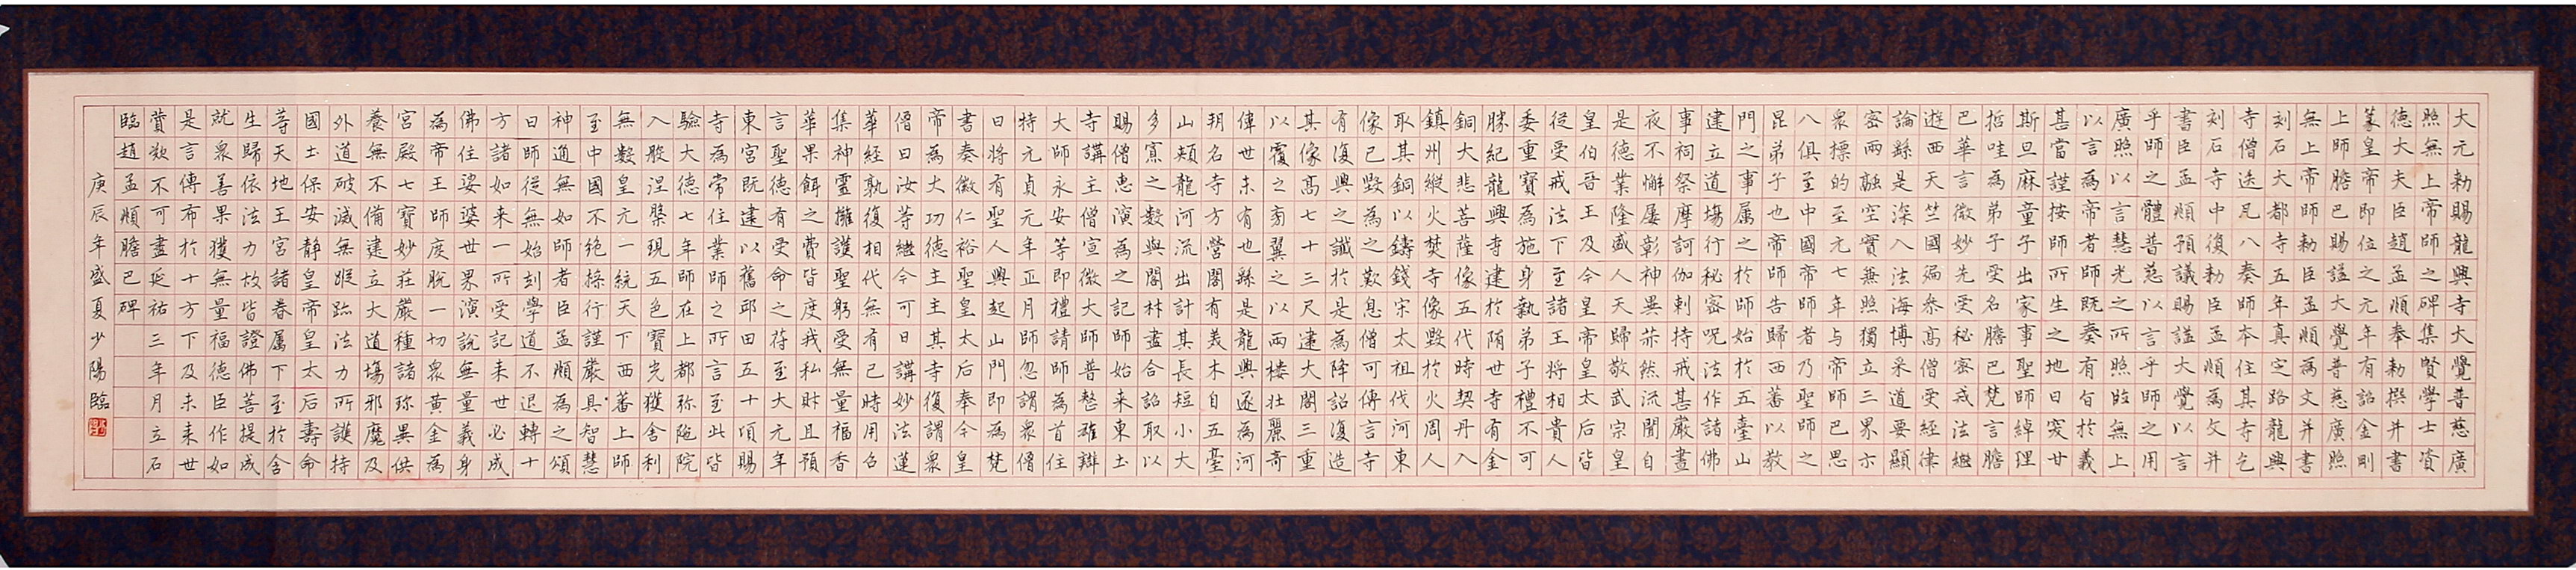 大元勅賜龍興寺大覺普慈廣
照無上帝師之碑集賢學士資
德大夫臣趙孟頫奉勅撰并書
篆皇帝即位之元年有詔金剛
上師膽巴賜謚大覺普慈廣照
無上帝師勅臣孟頫為文并書
刻石大都寺五年真定路龍興
寺僧迭凡八奏師本住其寺乞
刻石寺中復勅臣孟頫為文并
書臣孟頫預議賜謚大覺以言
乎師之體普慈以言乎師之用
廣照以言慧光之所照臨無上
以言為帝者師既奏有旨於義
甚當謹按師所生之地曰突甘
斯旦麻童子出家事聖師綽理
哲哇為弟子受名膽巴梵言膽
巴華言微妙先受秘密戒法繼
遊西天竺國遍叅高僧受經律
論繇是深入法海博采道要顯
密兩融空實兼照獨立三界示
眾標的至元七年与帝師巴思
八俱至中國帝師者乃聖師之
昆弟子也帝師告歸西蕃以教
門之事属之於師始於五臺山
建立道場行秘密呪法作諸佛
事祠祭摩訶伽剌持戒甚嚴晝
夜不懈屢彰神異赫然流聞自
是德業隆盛人天歸敬武宗皇
皇伯晉王及今皇帝皇太后皆
從受戒法下至諸王將相貴人
委重寶為施身執弟子禮不可
勝紀龍興寺建於隋世寺有金
銅大悲菩薩像五代時契丹入
鎮州縱火焚寺像毀於火周人
取其銅以鑄錢宋太祖伐河東
像已毀為之歎息僧可傳言寺
有復興之讖於是為降詔復造
其像高七十三尺建大閣三重
以覆之旁翼之以兩樓壯麗奇
偉世未有也繇是龍興遂為河
朔名寺方營閣有美木自五臺
山頰龍河流出計其長短小大
多寡之數與閣材盡合詔取以
賜僧惠演為之記師始来東土
寺講主僧宣微大師普整雄辯
大師永安等即禮請師為首住
特元貞元年正月師忽謂眾僧
曰將有聖人興起山門即為梵
書奏徽仁裕聖皇太后奉今皇
帝為大功德主主其寺復謂眾
僧曰汝等繼今可日講妙法蓮
華經孰復相代無有已時用召
集神靈擁護聖躬受無量福香
華果餌之費皆度我私財且預
言聖德有受命之苻至大元年
東宮既建以舊邸田五十頃賜
寺為常住業師之所言至此皆
驗大德七年師在上都弥陁院
入般涅槃現五色寶光獲舍利
無數皇元一統天下西蕃上師
至中國不絕操行謹嚴具智慧
神通無如師者臣孟頫為之頌
曰師從無始刻學道不退轉十
方諸如来一所受記来世必成
佛住娑婆世界演說無量義身
為帝王師度脱一切眾黃金為
宮殿七寶妙莊嚴種諸珎異供
養無不備建立大道場邪魔及
外道破滅無蹤跡法力所護持
國土保安靜皇帝皇太后壽命
等天地王宮諸眷属下至於含
生歸依法力故皆證佛菩提成
就眾善果獲無量福德臣作如
是言傳布於十方下及未来世
賛歎不可盡延祐三年月立石
臨趙孟頫膽巴碑
庚辰年盛夏少陽臨